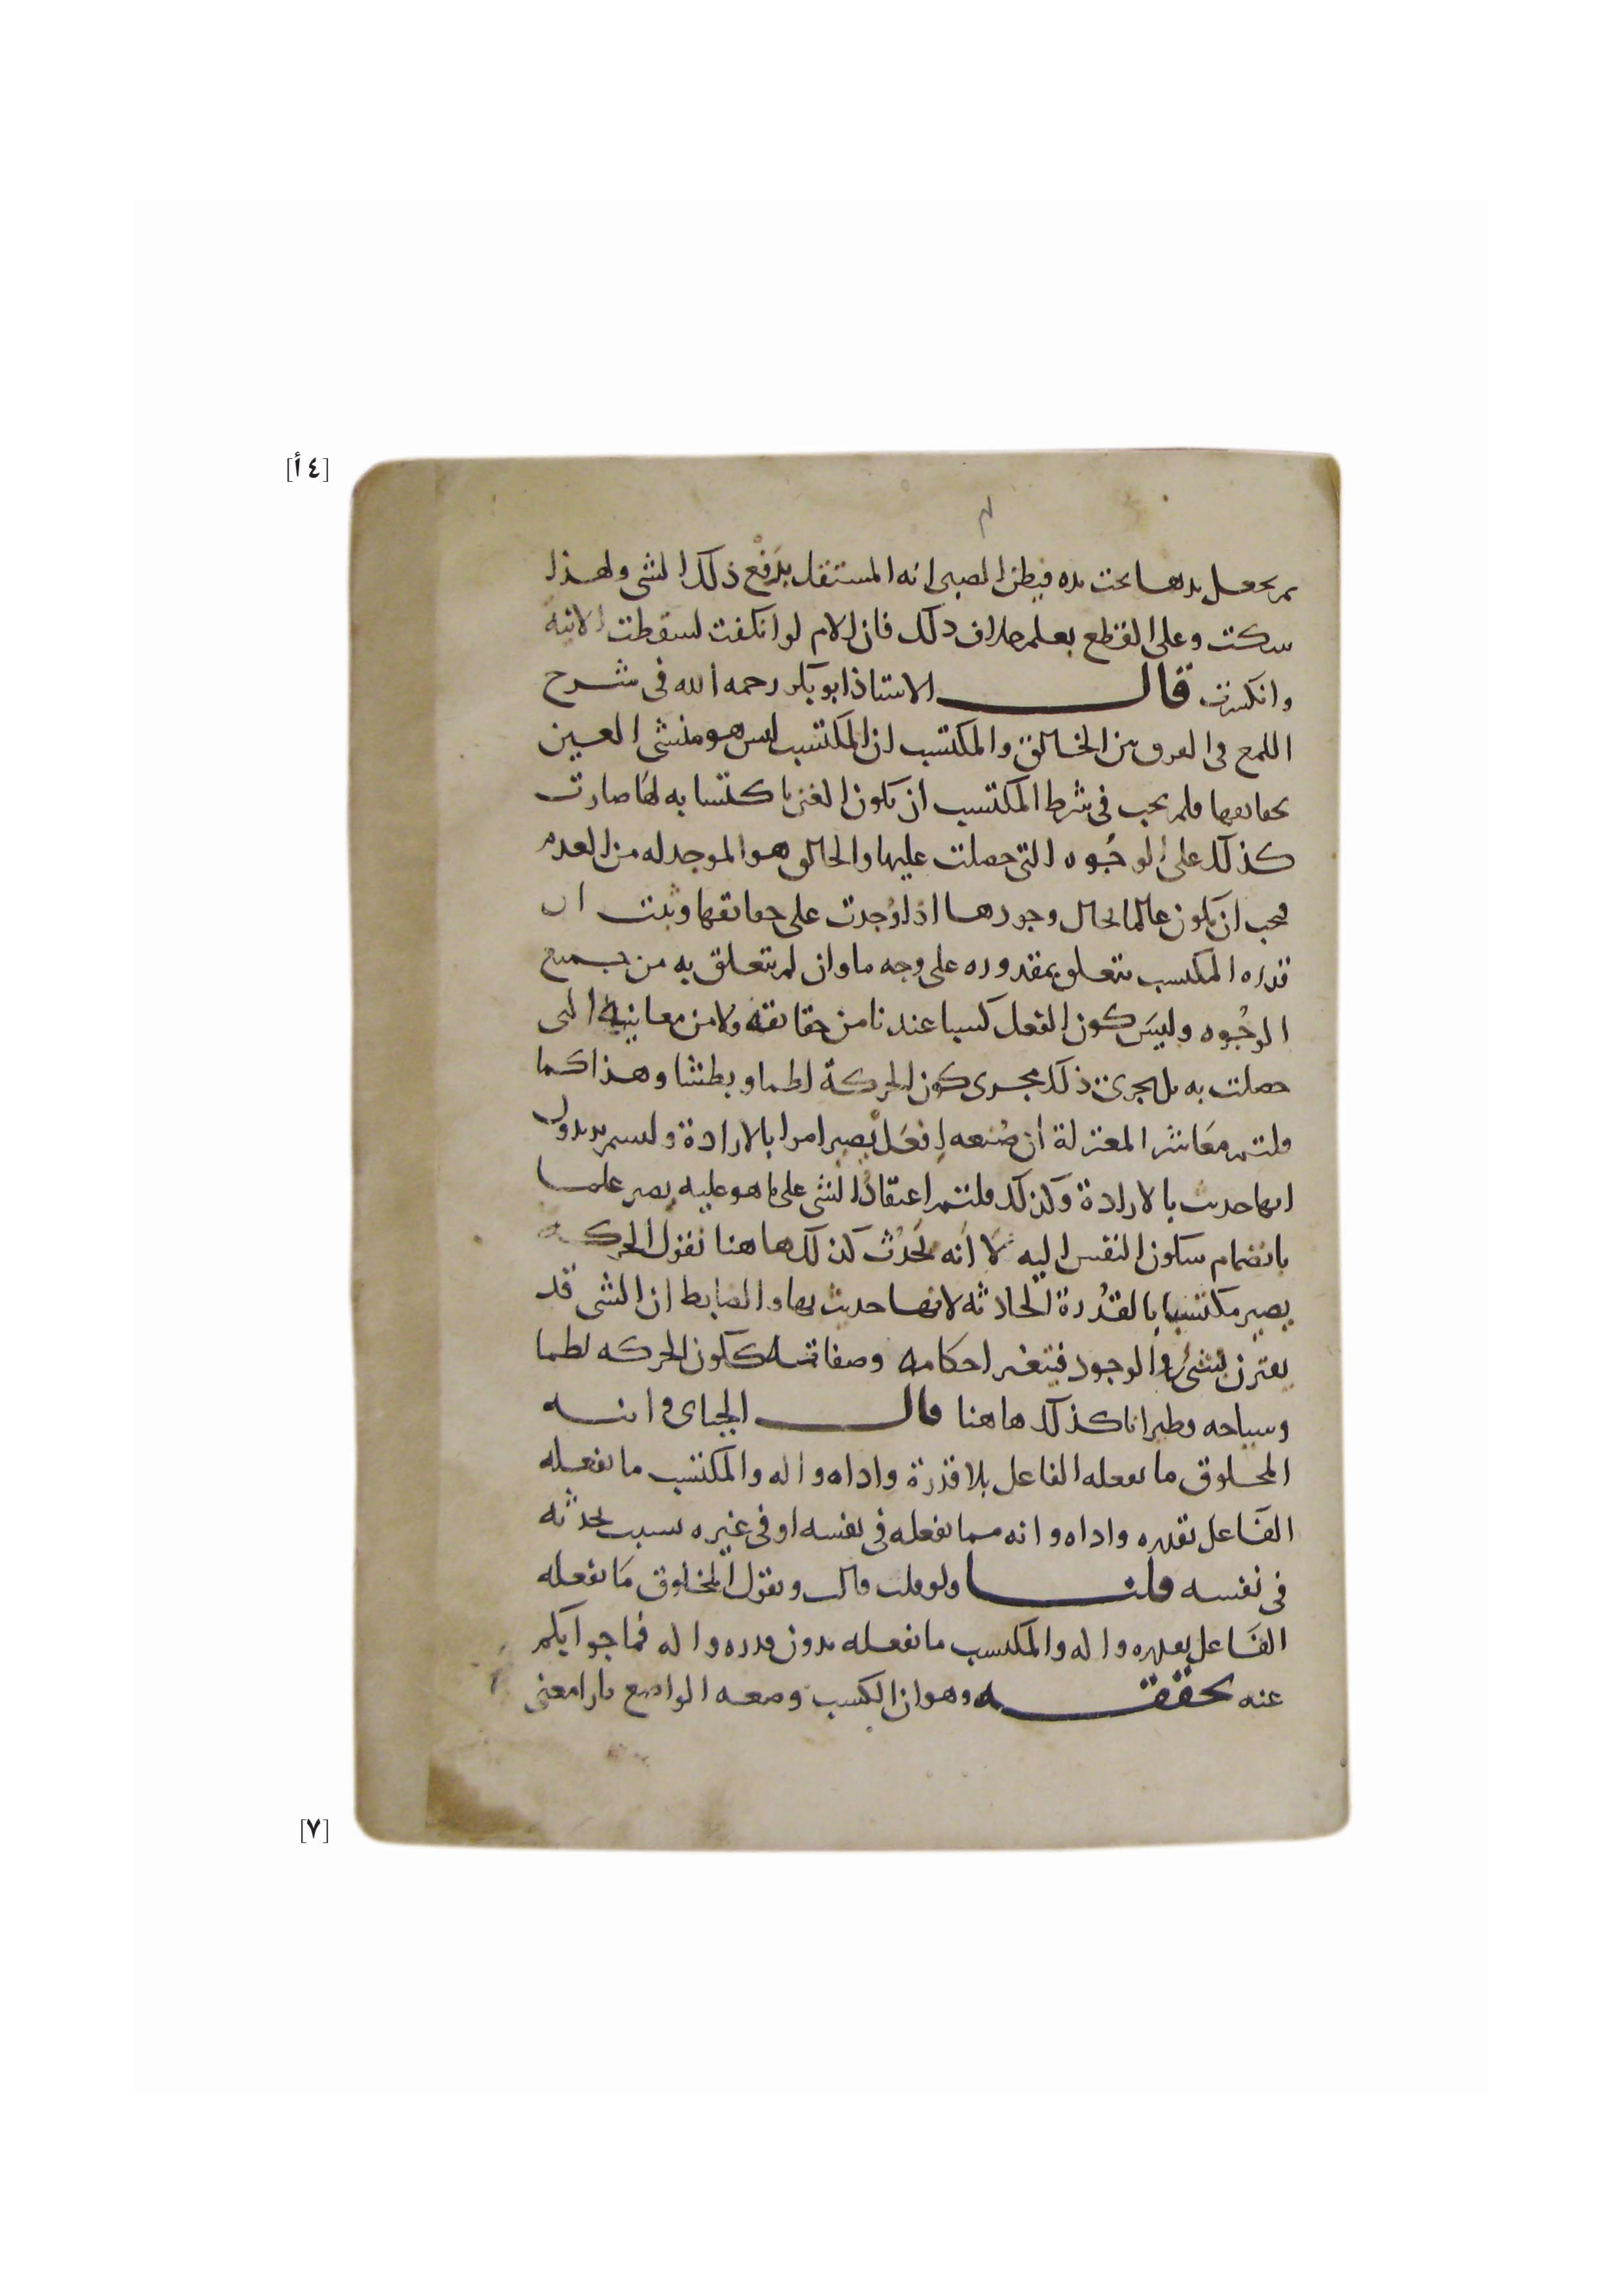 [٤ أ]
ثم تجعل يدها تحت يده فيظن الصبي انه المستقل برفع ذلك الشي ولهذا
سكت وعلى القطع يعلم خلاف ذلك فان الام لو انكفت لسقطت الانية
وانكسرت قال الاستاذ ابو بكر رحمه الله في شرح
اللمع في الفرق بين الخالق والمكتسب ان المكتسب ليس هو منشي العين
بحقايقها فلم يجب في شرط المكتسب ان يكون العين باكتسابه لها صارت
كذلك على الوجُوه التي حصلت عليها والخالق هو الموجد له من العدم
فيجب ان يكون عالما بحال وجودها اذا وُجدت على حقايقها وثبت ان
قدرة المكتسب تتعلق بمقدوره على وجه ما وان لم يتعلق به من جميع
الوجُوه وليسَ كون الفعل كسبا عندنا من حقايقه ولا من معانيه التي
حصلت به بل يجري ذلك مجرى كون الحركة لطما وبطشا وهذا كما
قلتم مَعَاشر المعتزلة ان صُنعه اِفعَل يصير امرا بالارادة ولستم تريدون
انها حدثت بالارادة وكذلك قلتم اعتقاد الشي على ما هو عليه يصير علما
بانضمام سكون النفس اليه لا انه يحدُث كذلك هاهنا نقول الحركة
يصير مكتسبا بالقدُرة الحادثه لانها حدثت بها والضابط ان الشي قد
يقترن بشيء في الوجود فيتغير احكامه وصفاته ككون الحركه لطما
وسباحه وطيرانا كذلك هاهنا قال الجباي وابنه
المخلوق ما يفعله الفاعل بلا قدرة واداه واله والمكتسب ما يفعله
الفَاعل بقدره واداه وانه مما يفعله في نفسه او في غيره بسبب يحدثه
في نفسه قلنا ولو قلب قالب ويقول المخلوق مَا يفعله
الفَاعل بقدره واله والمكتسب ما يفعله بدون قدره واله فما جوابكم
عنه تحقيقه وهو ان الكسب وضعه الواضع بازا معنى
[٧]